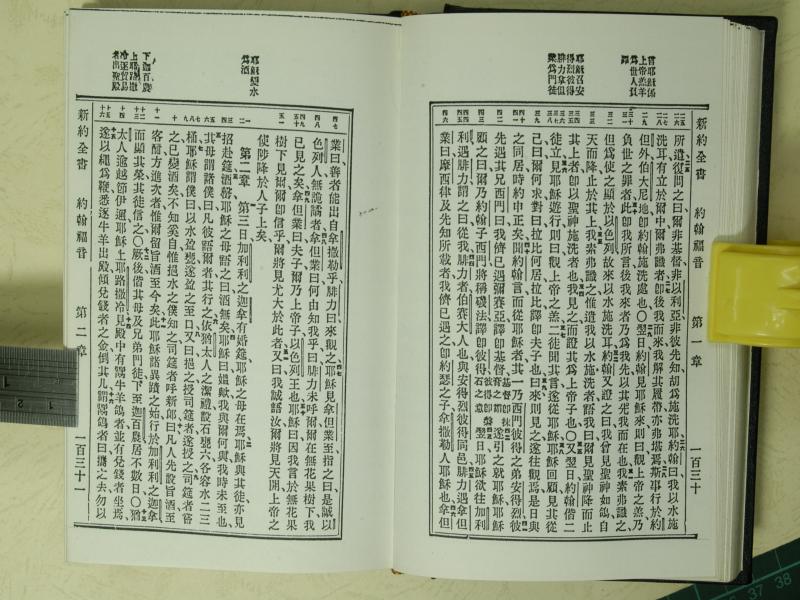 言耶穌係
上帝羔羊
爲世人負
罪
耶穌召安
得烈彼得
腓力拿但
業爲門徒
新約全書 約翰福音 第一章 一百三十
所遣、復問之曰、爾非基督、非以利亞、非彼先知、胡爲施洗耶、約翰曰、我以水施
洗耳、有立於爾中、爾弗識者、卽後我而來、我解其履帶亦弗堪焉、斯事行於約
但外伯大尼地、卽約翰施洗處也〇翌日約翰見耶穌來、則曰、觀上帝之羔、乃
負世之罪者、此卽我所言後我來者、乃爲我先、以其先我而在也、我素弗識之、
但爲使之顯於以色列、故來以水施洗耳、約翰又證之曰、我曾見聖神如鴿、自
天而降、止於其上、我素弗識之、惟遣我以水施洗者、語我曰、爾見聖神降而止
其上者、卽以聖神施洗者也、我見之而證其爲上帝子也〇又翌日、約翰偕二
徒立、見耶穌遊行、則曰、觀上帝之羔、二徒聞其言、遂從耶穌、耶穌回顧、見其從
己、曰、爾何求、對曰、拉比何居、拉比譯卽夫子也、曰、來則見之、遂往觀焉、是日與
之同居、時約申正矣、聞約翰言而從耶穌者、其一乃西門彼得之弟安得烈、彼
先遇其兄西門曰、我儕已遇彌賽亞、譯卽基督、基督卽抹膏之謂遂引之就耶穌、耶穌
顧之曰、爾乃約翰子西門、將稱磯法、譯卽彼得、彼得卽磐石之意翌日耶穌欲往加利
利、遇腓力、謂之曰、從我、腓力者、伯賽大人也、與安得烈彼得同邑、腓力遇拿但
業曰、摩西律及先知所載者、我儕已遇之、卽約瑟之子拿撒勒人耶穌也、拿但
耶穌變水
爲酒
下迦百農
上耶路撒
冷逐貿易
者出聖殿
業曰、善者能出自拿撒勒乎、腓力曰、來觀之、耶穌見拿但業至、指之曰、是誠以
色列人、無詭譎者、拿但業曰、何由知我乎、曰、腓力未呼爾、爾在無花果樹下、我
已見之矣、拿但業曰、夫子、爾乃上帝子、以色列王也、耶穌曰、因我言於無花果
樹下見爾、爾卽信乎、爾將見尤大於此者、又曰、我誠語汝、爾將見天開、上帝之
使陟降於人子上矣、
第二章 第三日加利利之迦拿有婚筵、耶穌之母在焉、耶穌與其徒亦見
招赴筵、酒罄、耶穌之母語之曰、酒無矣、耶穌曰、媼歟、我與爾何與、我時未至也、
其母謂諸僕曰、凡彼語爾者、其行之、依猶太人之潔禮、設石甕六、各容水二三
桶、耶穌謂僕曰、以水盈甕、遂盈之至口、又曰、挹之授司筵者、遂授之、司筵者嘗
之、已變酒矣、不知奚自、惟挹水之僕知之、司筵者呼新郎曰、凡人先設旨酒、至
客酣、方進次者、惟爾留旨酒至今矣、此耶穌諸異蹟之始、行於加利利之迦拿、
而顯其榮、其徒信之〇厥後偕其母及兄弟門徒下至迦百農、居不數日〇猶
太人逾越節伊邇、耶穌上耶路撒冷、見殿中有鬻牛羊鴿者、並有兌錢者坐焉、
遂以繩爲鞭、悉逐牛羊出殿、傾兌錢者之金、倒其几、謂鬻鴿者曰、攜之去、勿以
新約全書 約翰福音 第二章 一百三十一